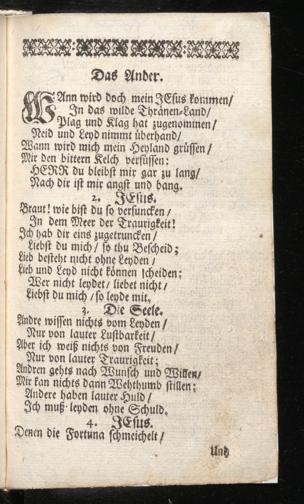 Das Ander.
WAnn wird doch mein JEsus kommen/
In das wilde Thränen-Land/
Plag und Klag hat zugenommen/
Neid und Leyd nimmt überhand/
Wann wird mich mein Heyland grüssen/
Mir den bittern Kelch versüssen:
HERR du bleibst mir gar zu lang/
Nach dir ist mir angst und bang.
2. JEsus.
Braut! wie bist du so versuncken/
In dem Meer der Traurigkeit!
Ich hab dir eins zugetruncken/
Liebst du mich/ so thu Bescheid;
Lieb besteht nicht ohne Leyden/
Lieb und Leyd nicht können scheiden:
Wer nicht leydet/ liebet nicht/
Liebst du mich/ so leyde mit.
3. Die Seele.
Andre wissen nichts vom Leyden/
Nur von lauter Lustbarkeit/
Aber ich weiß nichts von Freuden/
Nur von lauter Traurigkeit;
Andren gehts nach Wunsch und Willen/
Mir kan nichts dann Wehthumb stillen;
Andere haben lauter Huld/
Ich muß leyden ohne Schuld.
4. JEsus.
Denen die Fortuna schmeichelt/
Und